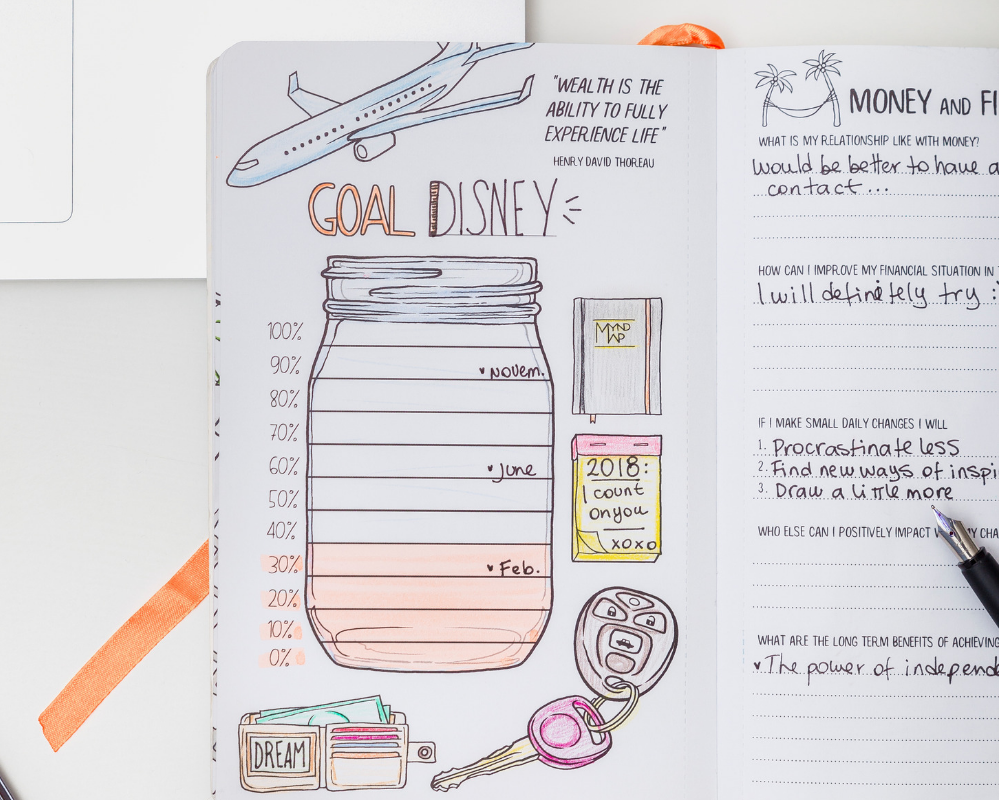 "WEALTH IS THE
ABILITY TO FULLY
EXPERIENCE LIFE"
HENRY DAVID THOREAU
GOAL DISNEY
100%
90%
♥ Novem.
80%
70%
60%
♥ June
50%
40%
30%
♥ Feb.
20%
10%
0%
MYND
MAP
2018:
I count
on you
xoxo
DREAM
MONEY AND FI
WHAT IS MY RELATIONSHIP LIKE WITH MONEY?
Would be better to have a
contact...
HOW CAN I IMPROVE MY FINANCIAL SITUATION IN
I will definitely try :
IF I MAKE SMALL DAILY CHANGES I WILL
1. Procrastinate less
2. Find new ways of inspi
3. Draw a little more
WHO ELSE CAN I POSITIVELY IMPACT MY CHA
WHAT ARE THE LONG TERM BENEFITS OF ACHIEVING
♥ The power of independ